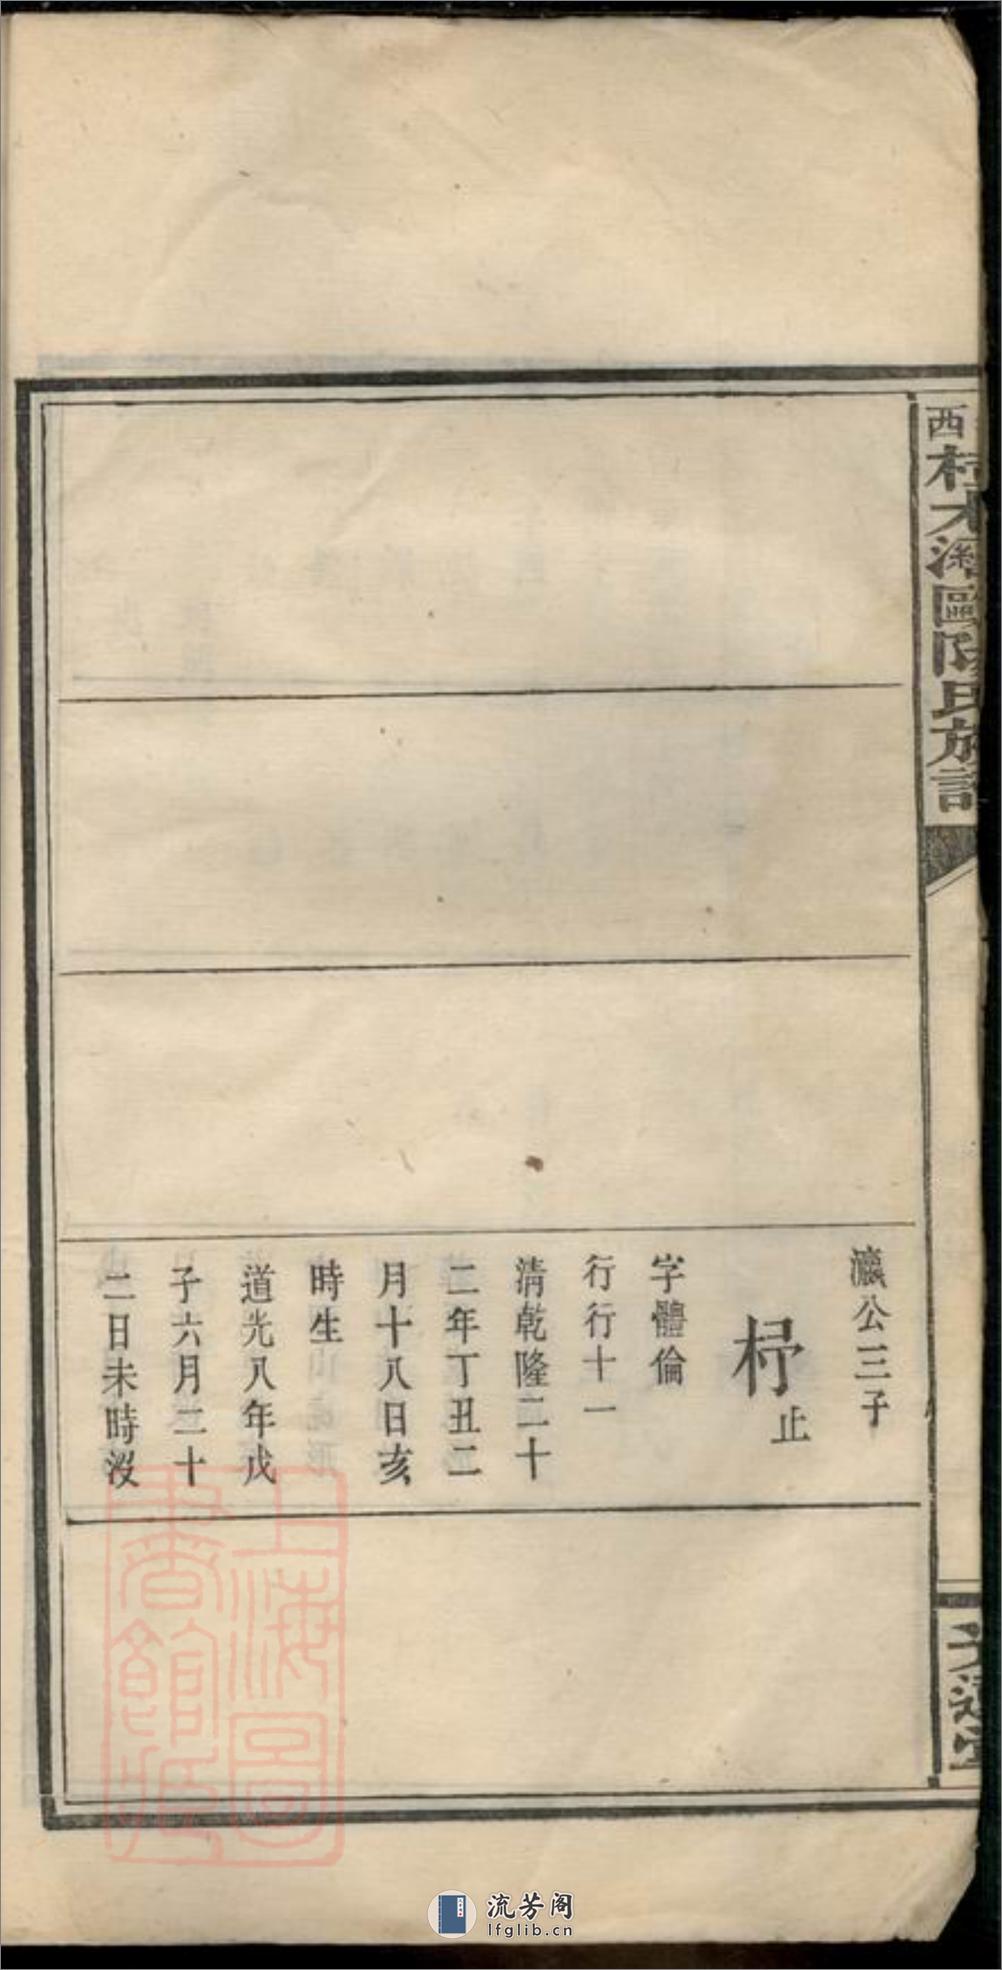 西
歐陽氏族譜
瀛公三子
杼止
字體倫
行行十一
清乾隆二十
二年丁丑二
月十八日亥
時生
道光八年戊
子六月二十
二日未時沒
上海圖
書館藏
流芳阁
lfglib.cn